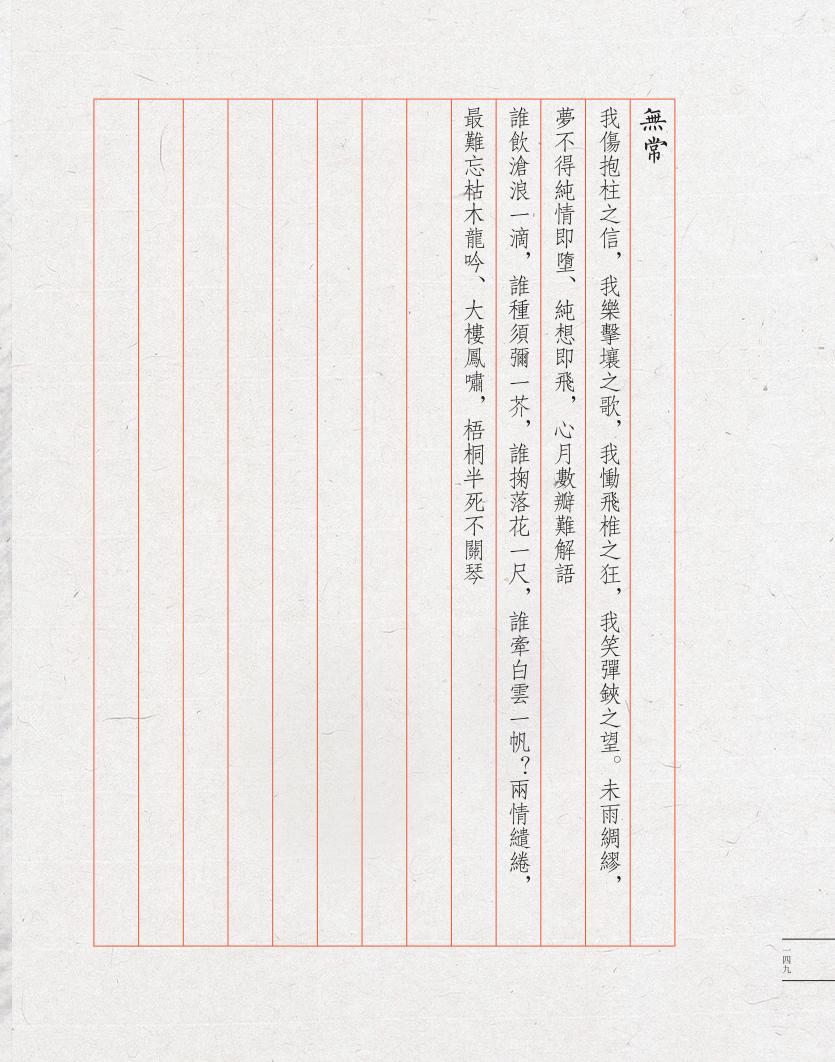 無常
我傷抱柱之信，我樂擊壤之歌，我慟飛椎之狂，我笑彈鋏之望。未雨綢繆，
夢不得純情即墮、純想即飛，心月數瓣難解語
誰飲滄浪一滴，誰種須彌一芥，誰掬落花一尺，誰牽白雲一帆？兩情繾綣，
最難忘枯木龍吟、大樓鳳嘯，梧桐半死不關琴
一四九